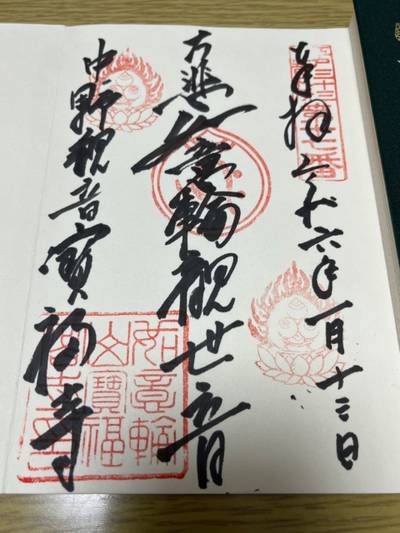 奉拝 令和六年一月十三日
大悲 如意輪観世音
中野観音寶福寺
如意輪
山寶福